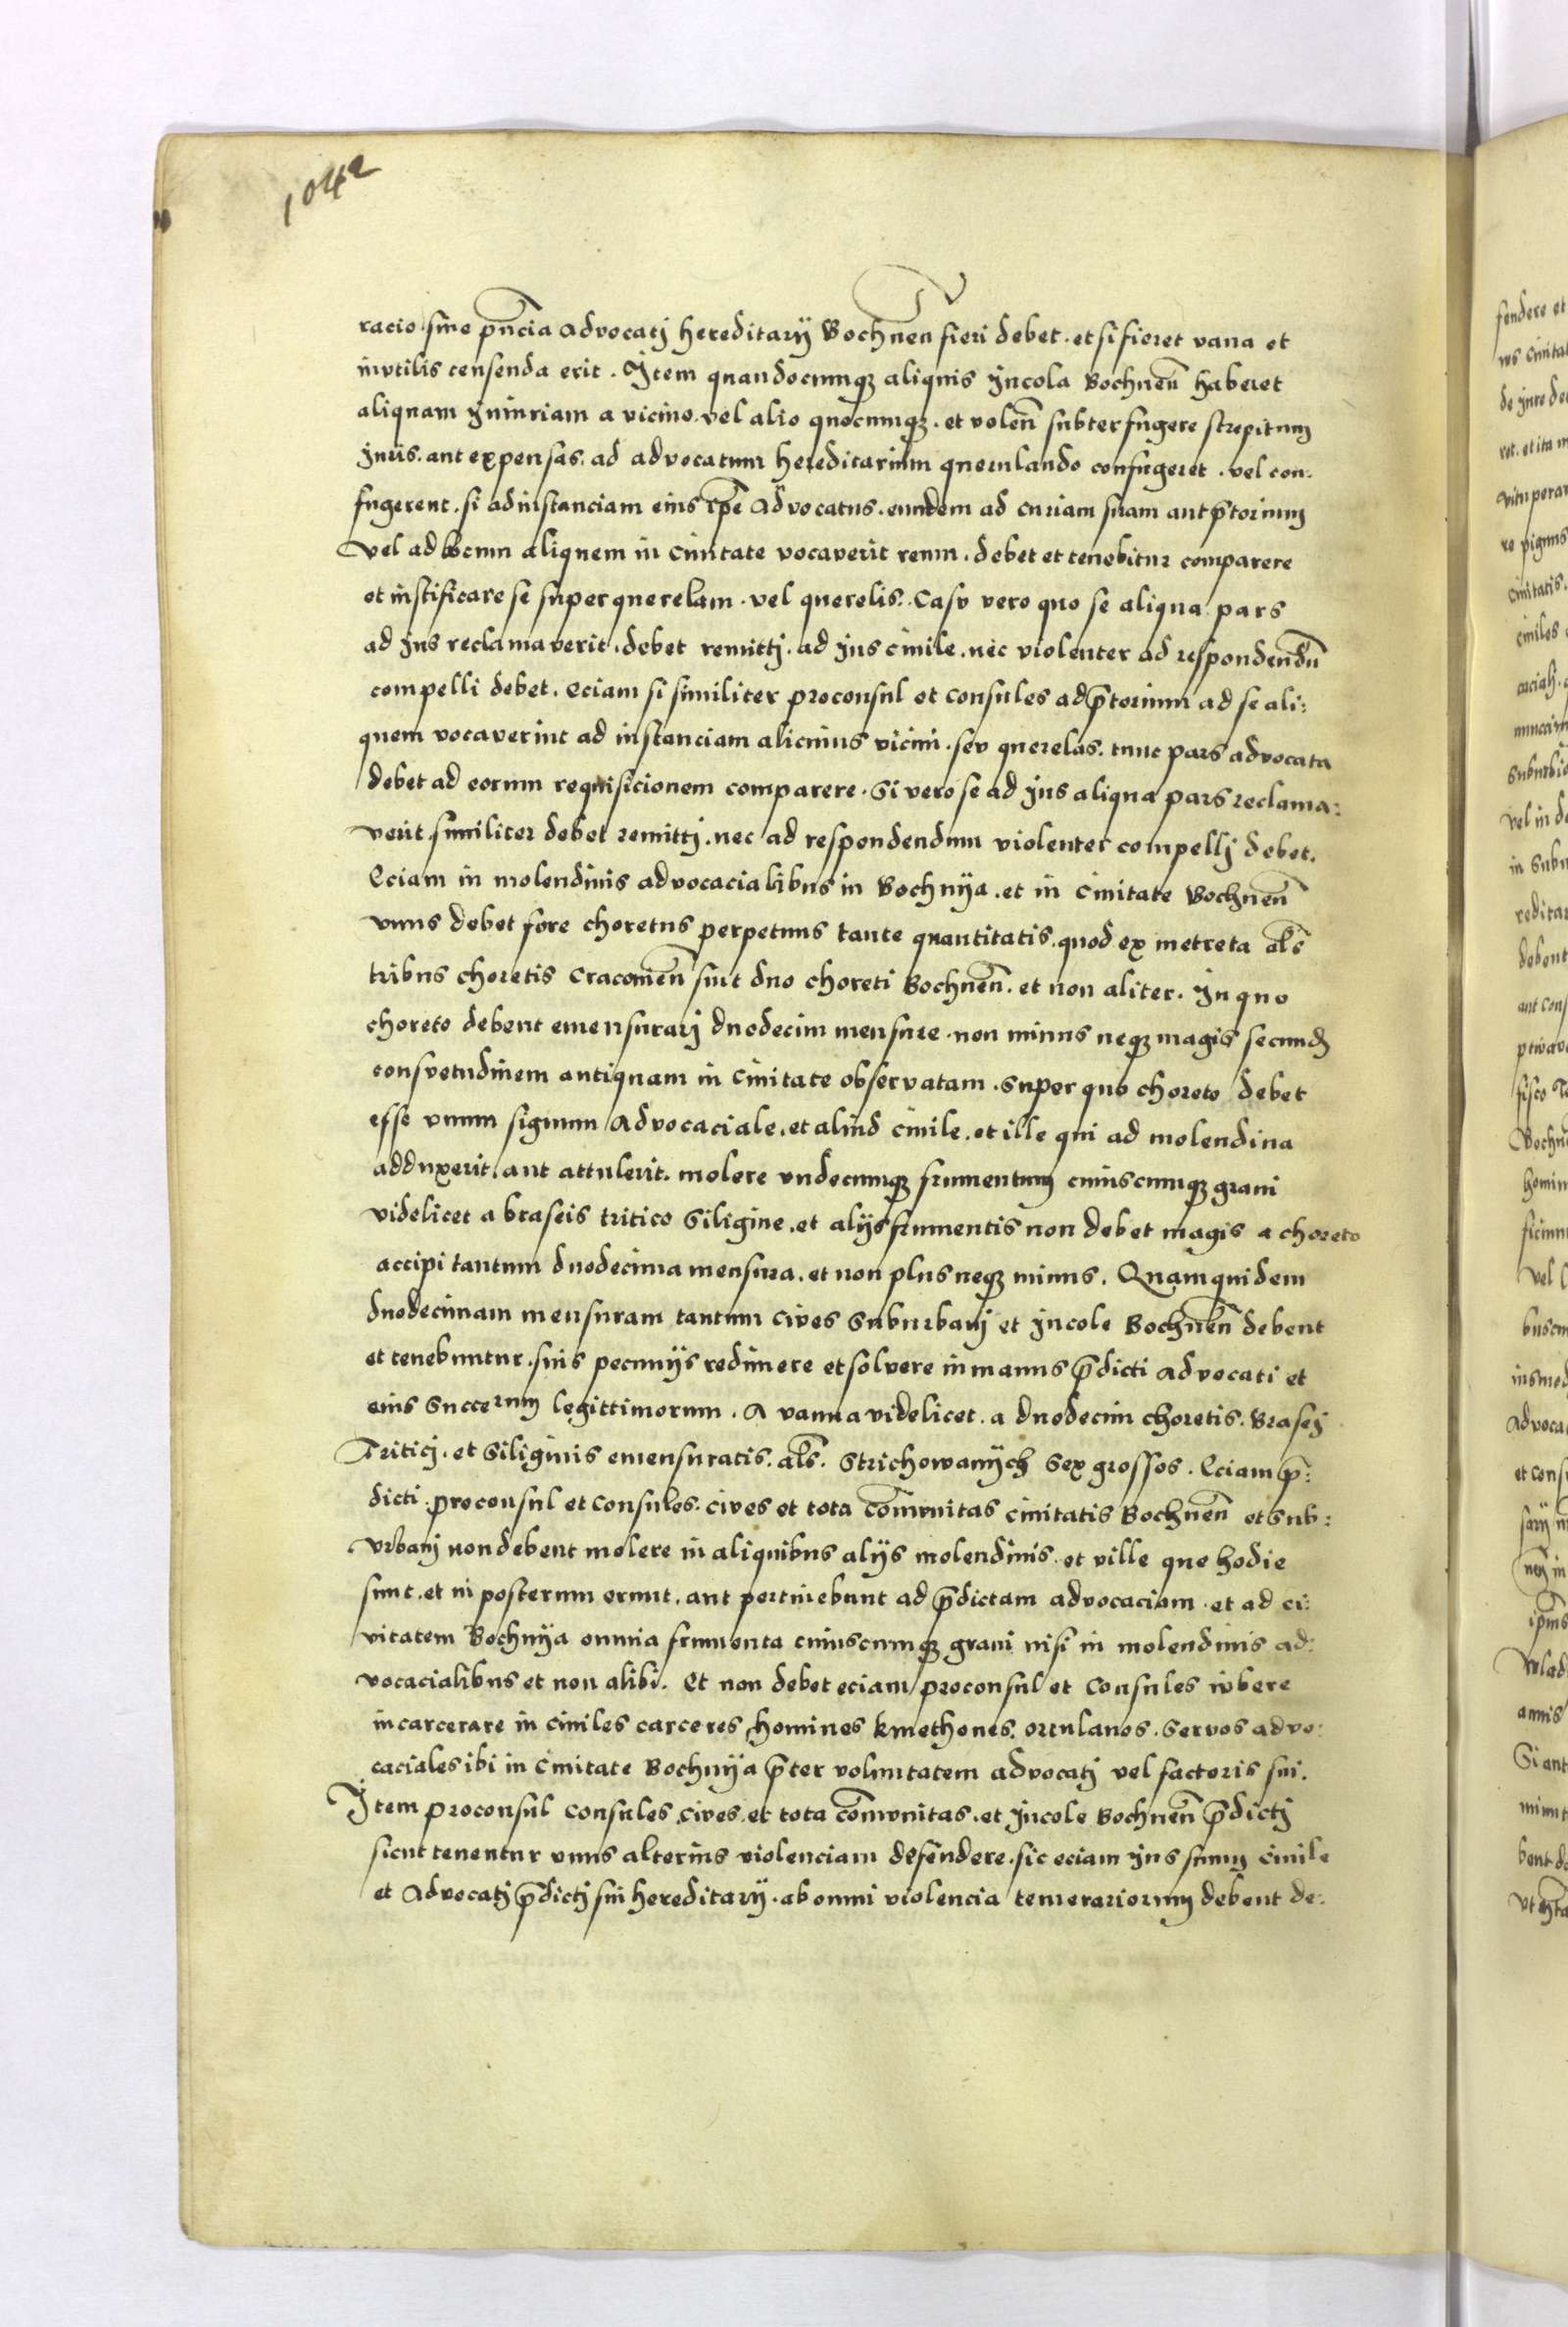 1042
racio sine pn̄cia advocatj hereditarÿ Bochnen̄ fieri debet · et si fieret vana et
invtilis censenda erit . Item quandocumqꝫ aliquis jncola Bochnen̄ haberet
aliquam jniuriam a vicino · vel alio quocumqꝫ · et volen̄ subterfugere strepitum
juris · aut expensas · ad advocatum hereditarium querulando confugeret · vel con-
fugerent · si ad instanciam eius ip̄e Advocatus · eundem ad curiam suam aut p̄torium
vel ad locum aliquem in civitate vocaverit reum · debet et tenebitur comparere
et iustificare se super querelam · vel querelis · Casv vero quo se aliqua pars
ad jus reclamaverit · debet remittj · ad jus civile · nec violenter ad respondendū
compelli debet . Eciam si similiter proconsul et consules ad p̄torium ad se ali:
quem vocaverint ad instanciam alicuius vicini · sev querelas · tunc pars advocata
debet ad eorum requisicionem comparere · Si vero se ad jus aliqua pars reclama:
verit · similiter debet remittj · nec ad respondendum violenter compellj debet .
Eciam in molendinis advocacialibus in Bochnÿa · et in Civitate Bochnen̄
vnus debet fore choretus perpetuus tante quantitatis · quod ex metreta al̄s
tribus choretis Cracovien̄ sint duo choreti Bochnen̄ · et non aliter · In quo
choreto debent emensurarj duodecim mensure · non minus neqꝫ magis secund
consvetudinem antiquam in Civitate observatam · Super quo choreto debet
esse vnum signum Advocaciale · et aliud civile · et ille qui ad molendina
adduxerit · aut attulerit · molere vndecumqꝫ frumentum cuiuscumqꝫ grani
videlicet a braseis tritico Siligine · et alÿs frumentis non debet magis a choreto
accipi tantum duodecima mensura · et non plus neqꝫ minus . Quam quidem
duodecimam mensuram tantum cives Suburbanj et jncole Bochnen̄ debent
et tenebuntur · suis pecunÿs redimere et solvere in manus p̄dicti advocati et
eius Succerum legittimorum . A vanna videlicet · a duodecim choretis · Brasej
Triticj · et Siliginis emensuratis · al̄s · Strichowanÿch Sex grossos . Eciam p̄:
dicti proconsul et consules · cives et tota com̄vnitas civitatis Bochnen̄ et Sub:
vrbanj non debent molere in aliquibus alÿs molendinis · et ville que hodie
sunt · et in posterum erunt · aut pertinebunt ad p̄dictam advocaciam · et ad ci:
vitatem Bochnÿa omnia frumenta cuiuscumqꝫ grani nisi in molendinis ad:
vocacialibus et non alibi . Et non debet eciam proconsul et Consules ivbere
incarcerare in civiles carceres homines kmethones · ortulanos · Servos advo:
caciales ibi in Civitate Bochnÿa p̄ter voluntatem advocatj vel factoris sui .
Item proconsul consules cives · et tota com̄vnitas · et jncole Bochnen̄ p̄dictj
sicut tenentur vnus alterius violenciam defendere · sic eciam jus suum civile
et Advocatj p̄dictj sui hereditarÿ · ab omni violencia temerariorum debent de: